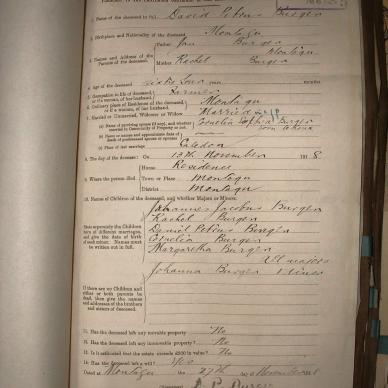 1. Name of the deceased in full David Petrus Burger
2. Birthplace and Nationality of the deceased Montagu
3. Names and Address of the Parents of the deceased. Father Jan Burger Montagu
Mother Rachel Burger
4. Age of the deceased years months
5. Occupation in life of deceased, or if a woman, of her husband. Farmer
6. Ordinary place of Residence of the deceased, or if a woman, of her husband. Montagu
7. Married or Unmarried, Widower or Widow Married
(a) Name of surviving spouse (if any), and whether married in Community of Property or not. Sophia Burger
born
(b) Name or names and approximate date of death of predeceased spouse or spouses
(c) Place of last marriage Caledon
8. The day of the decease: On 13th November 191 8.
9. Where the person died. House Residence
Town or Place Montagu
District Montagu
10. Names of Children of deceased, and whether Majors or Minors.
Johannes Jacobus Burger
Rachel Burger
Daniel Petrus Burger
Cornelia Burger
Margaretha Burger
All majors
Johanna Burger Minor
State separately the Children born of different marriages, and give the date of birth of each minor. Names must be written out in full.
If there are no Children and either or both parents be dead, then give the names and addresses of the brothers and sisters of deceased.
11. Has the deceased left any movable property No
12. Has the deceased left any immovable property? No
13. Is it estimated that the estate exceeds £300 in value? No
14. Has the deceased left a will? Yes
Dated at Montagu the 27th